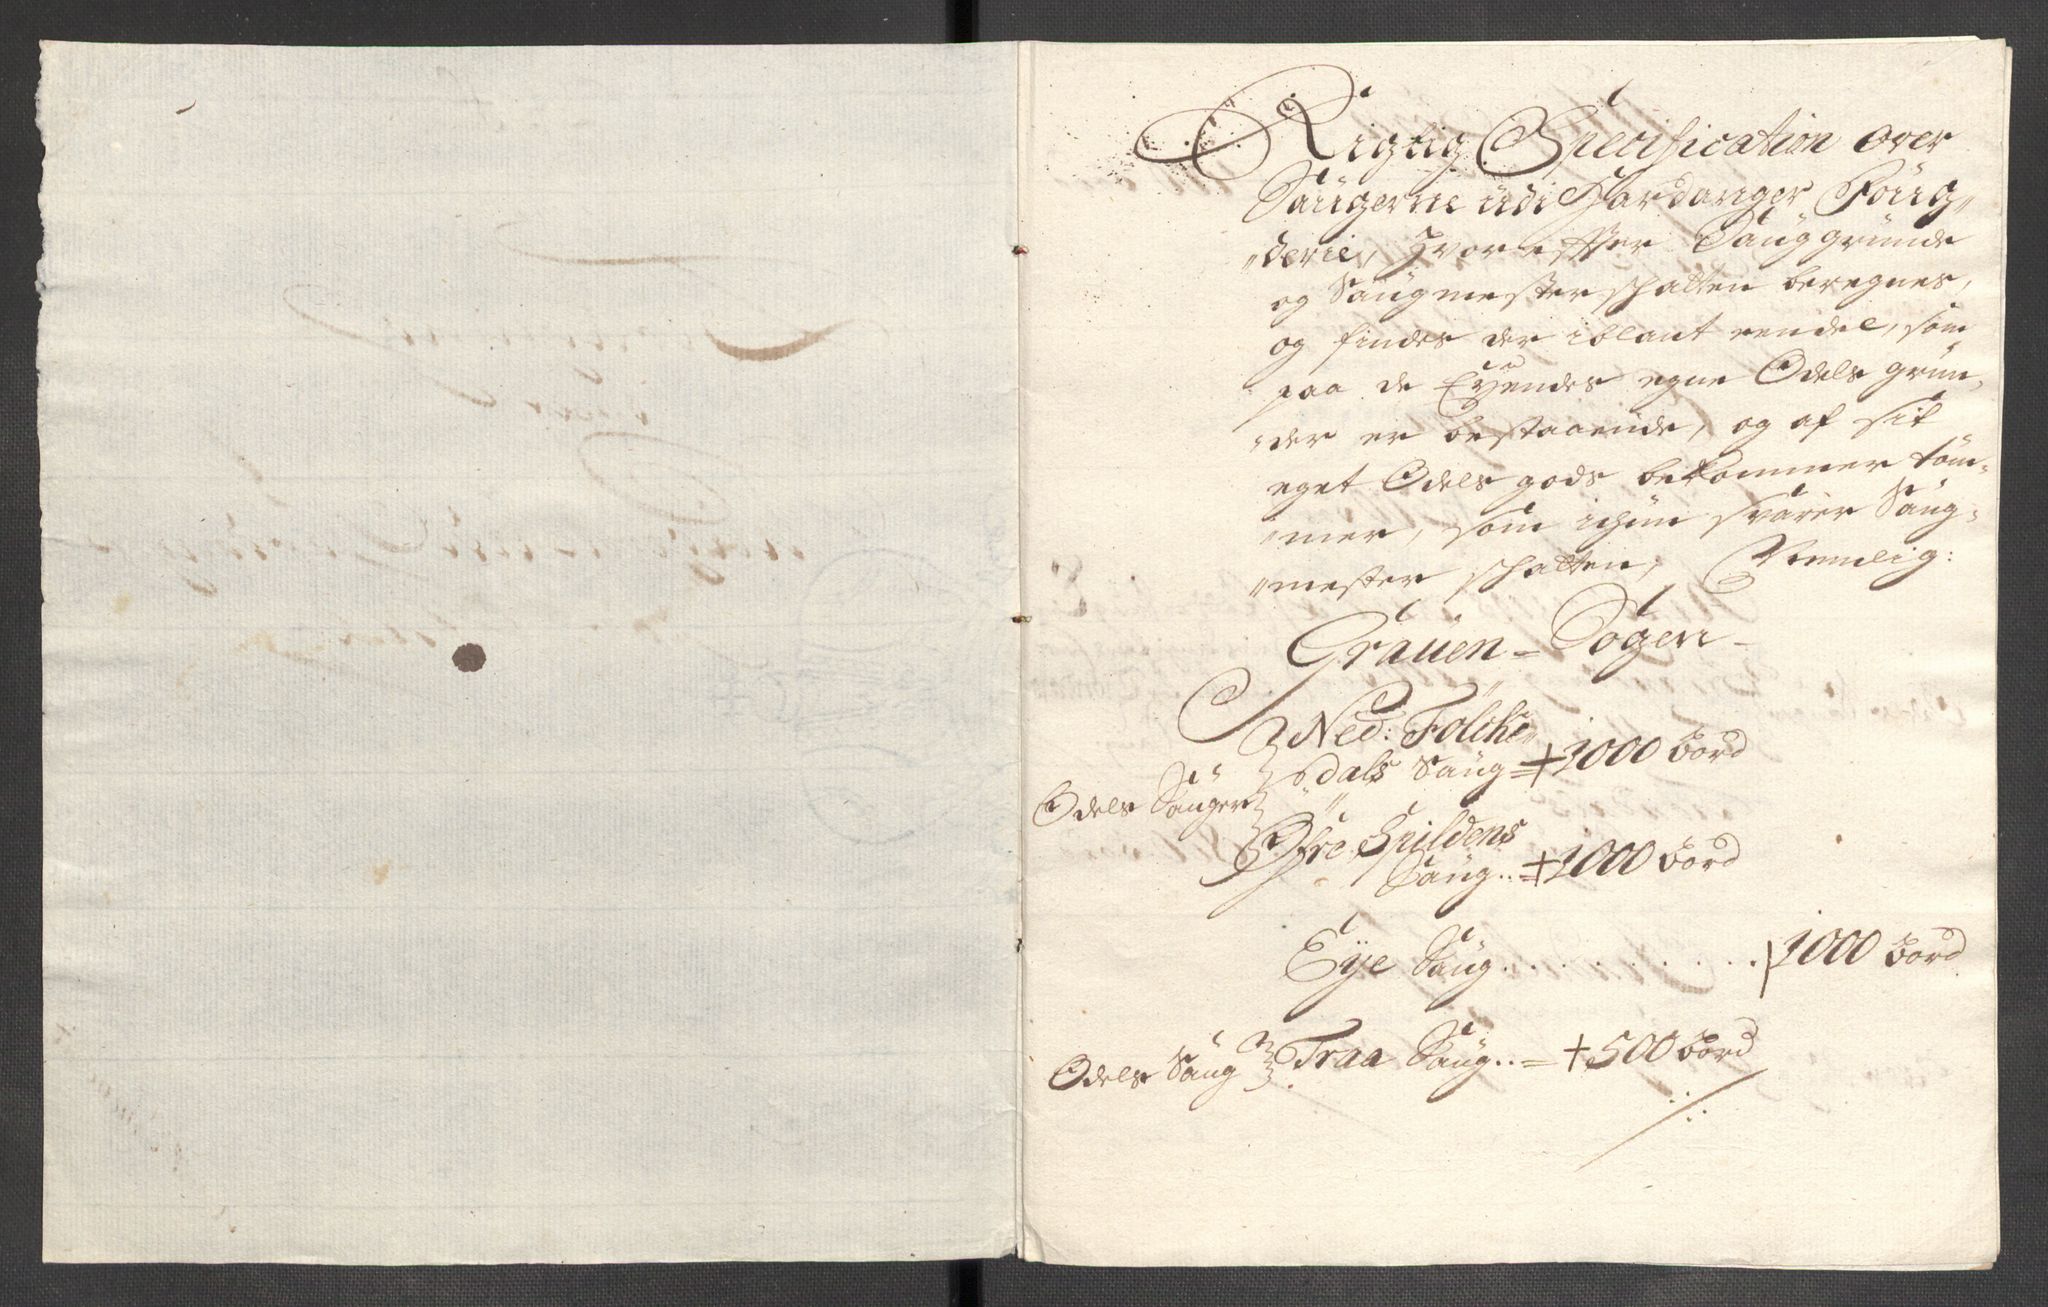 Rigtig Specification over
Saugerne udi Hardanger Foug„
„derie, Hvor efter Sauggrunde
og Saugmester schatten beregnes,
og findes der iblant eendel, som
paa de Eyendes egne Odels grün„
„der er bestaaende, og af sit
eget Odels gods bekommer töm„
„mer, som ichün svarer Saug„
„mester schatten, Nemlig:
Grauen Sogen
Ned: Folche„
„dals Saug = + 1000 bord
Odels Sauger
Øfre Spildens
Saug.. = + 1000 bord
Eye Saug . . . . . . . . . 1000 bord
Odels Saug Traa Saug.. = + 500 bord